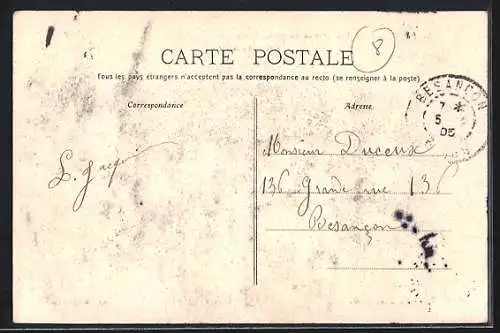 8
CARTE POSTALE
Tous les pays étrangers n'acceptent pas la correspondance au recto (se renseigner à la poste)
Correspondance
Adresse
BESANÇON
7
5
05
L. Jacquin
Monsieur Duceux
136 Grande rue 136
Besançon